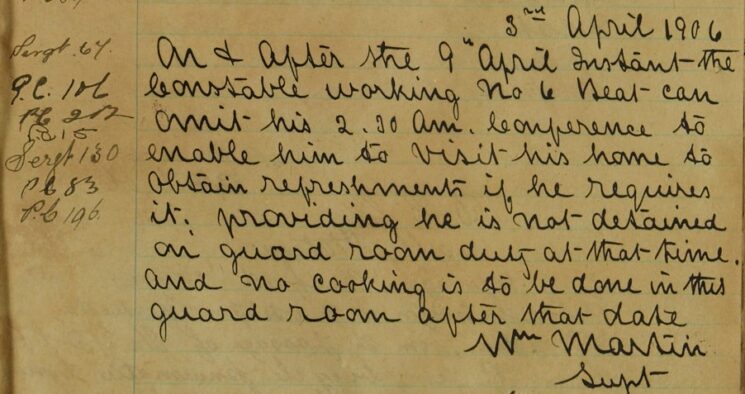 3rd April 1906
On & After the 9th April Instant the
Constable working No 6 Beat can
omit his 2.30 Am. Conference to
enable him to visit his home to
obtain refreshments if he requires
it; providing he is not detained
on guard room duty at that time.
and no cooking is to be done in this
guard room after that date
Wm Martin
Supt
Sergt. 67.
P.C. 106
P.C. 15
Sergt 130
P.C 83
P.C 196